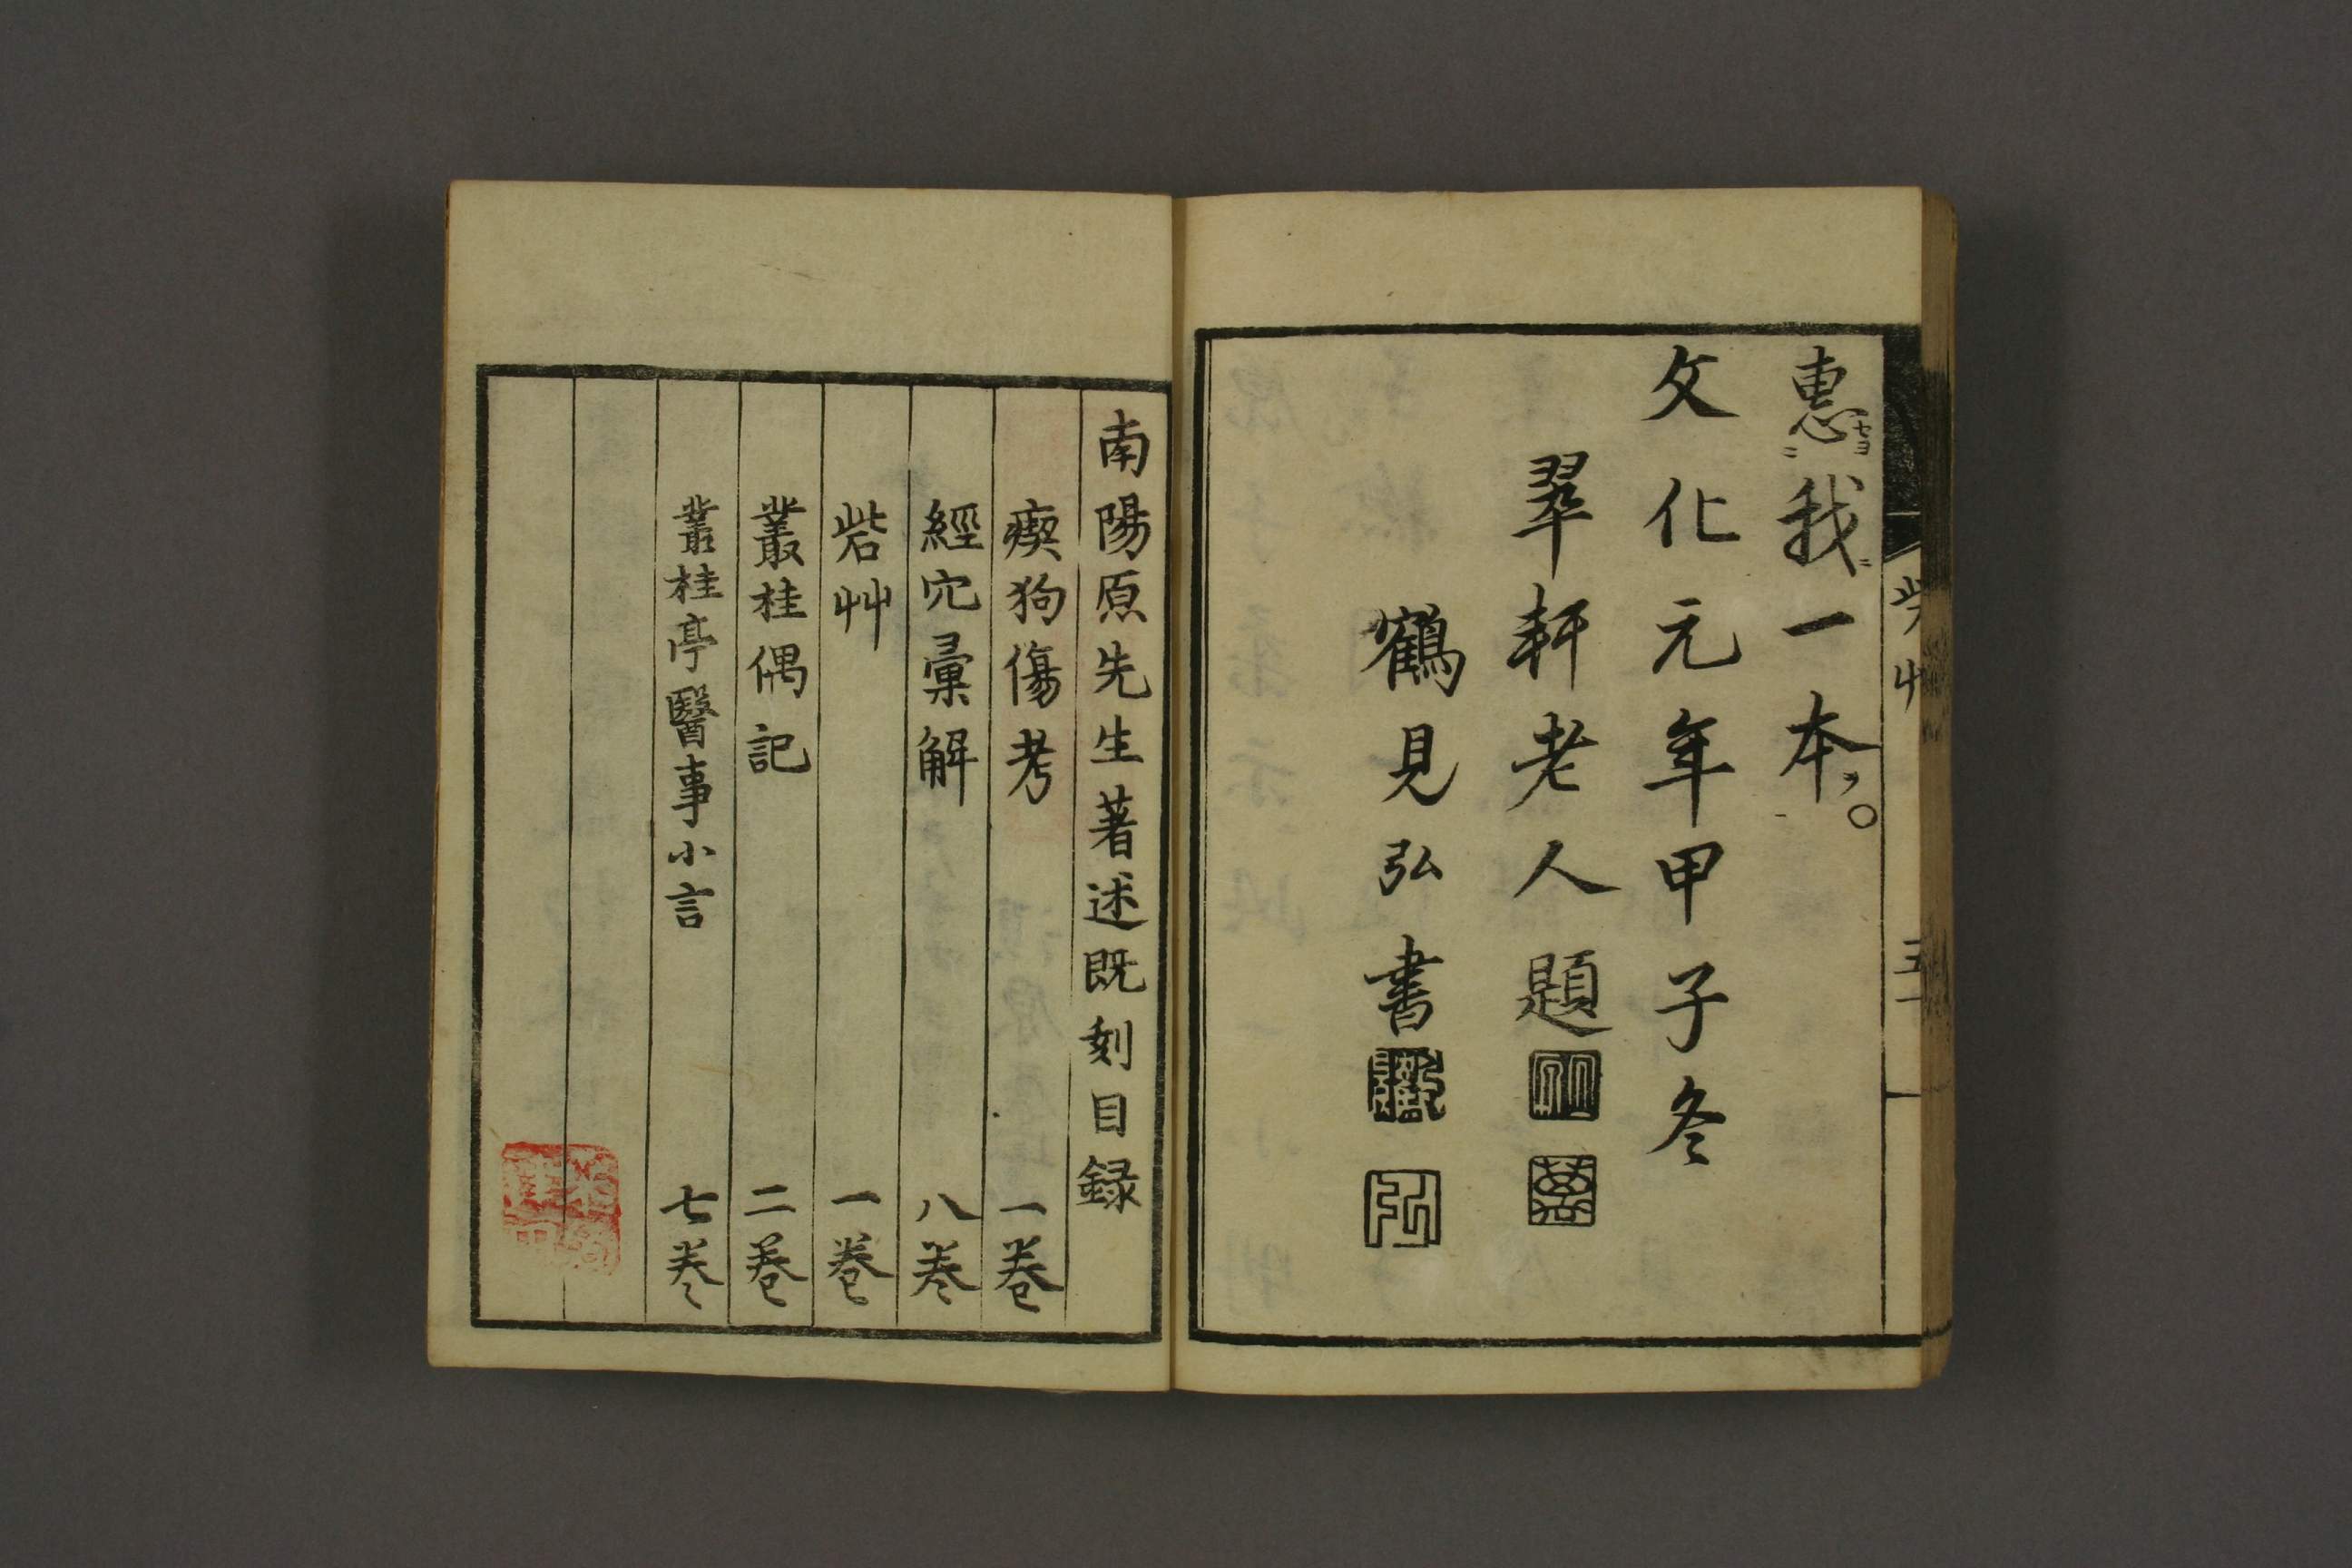 惠我一本。
文化元年甲子冬
翠軒老人題
鶴見弘書
砦艸
五十
南陽原先生著述既刻目録
瘈狗傷考 一卷
經穴彙解 八卷
砦艸 一卷
叢桂偶記 二卷
叢桂亭醫事小言 七卷